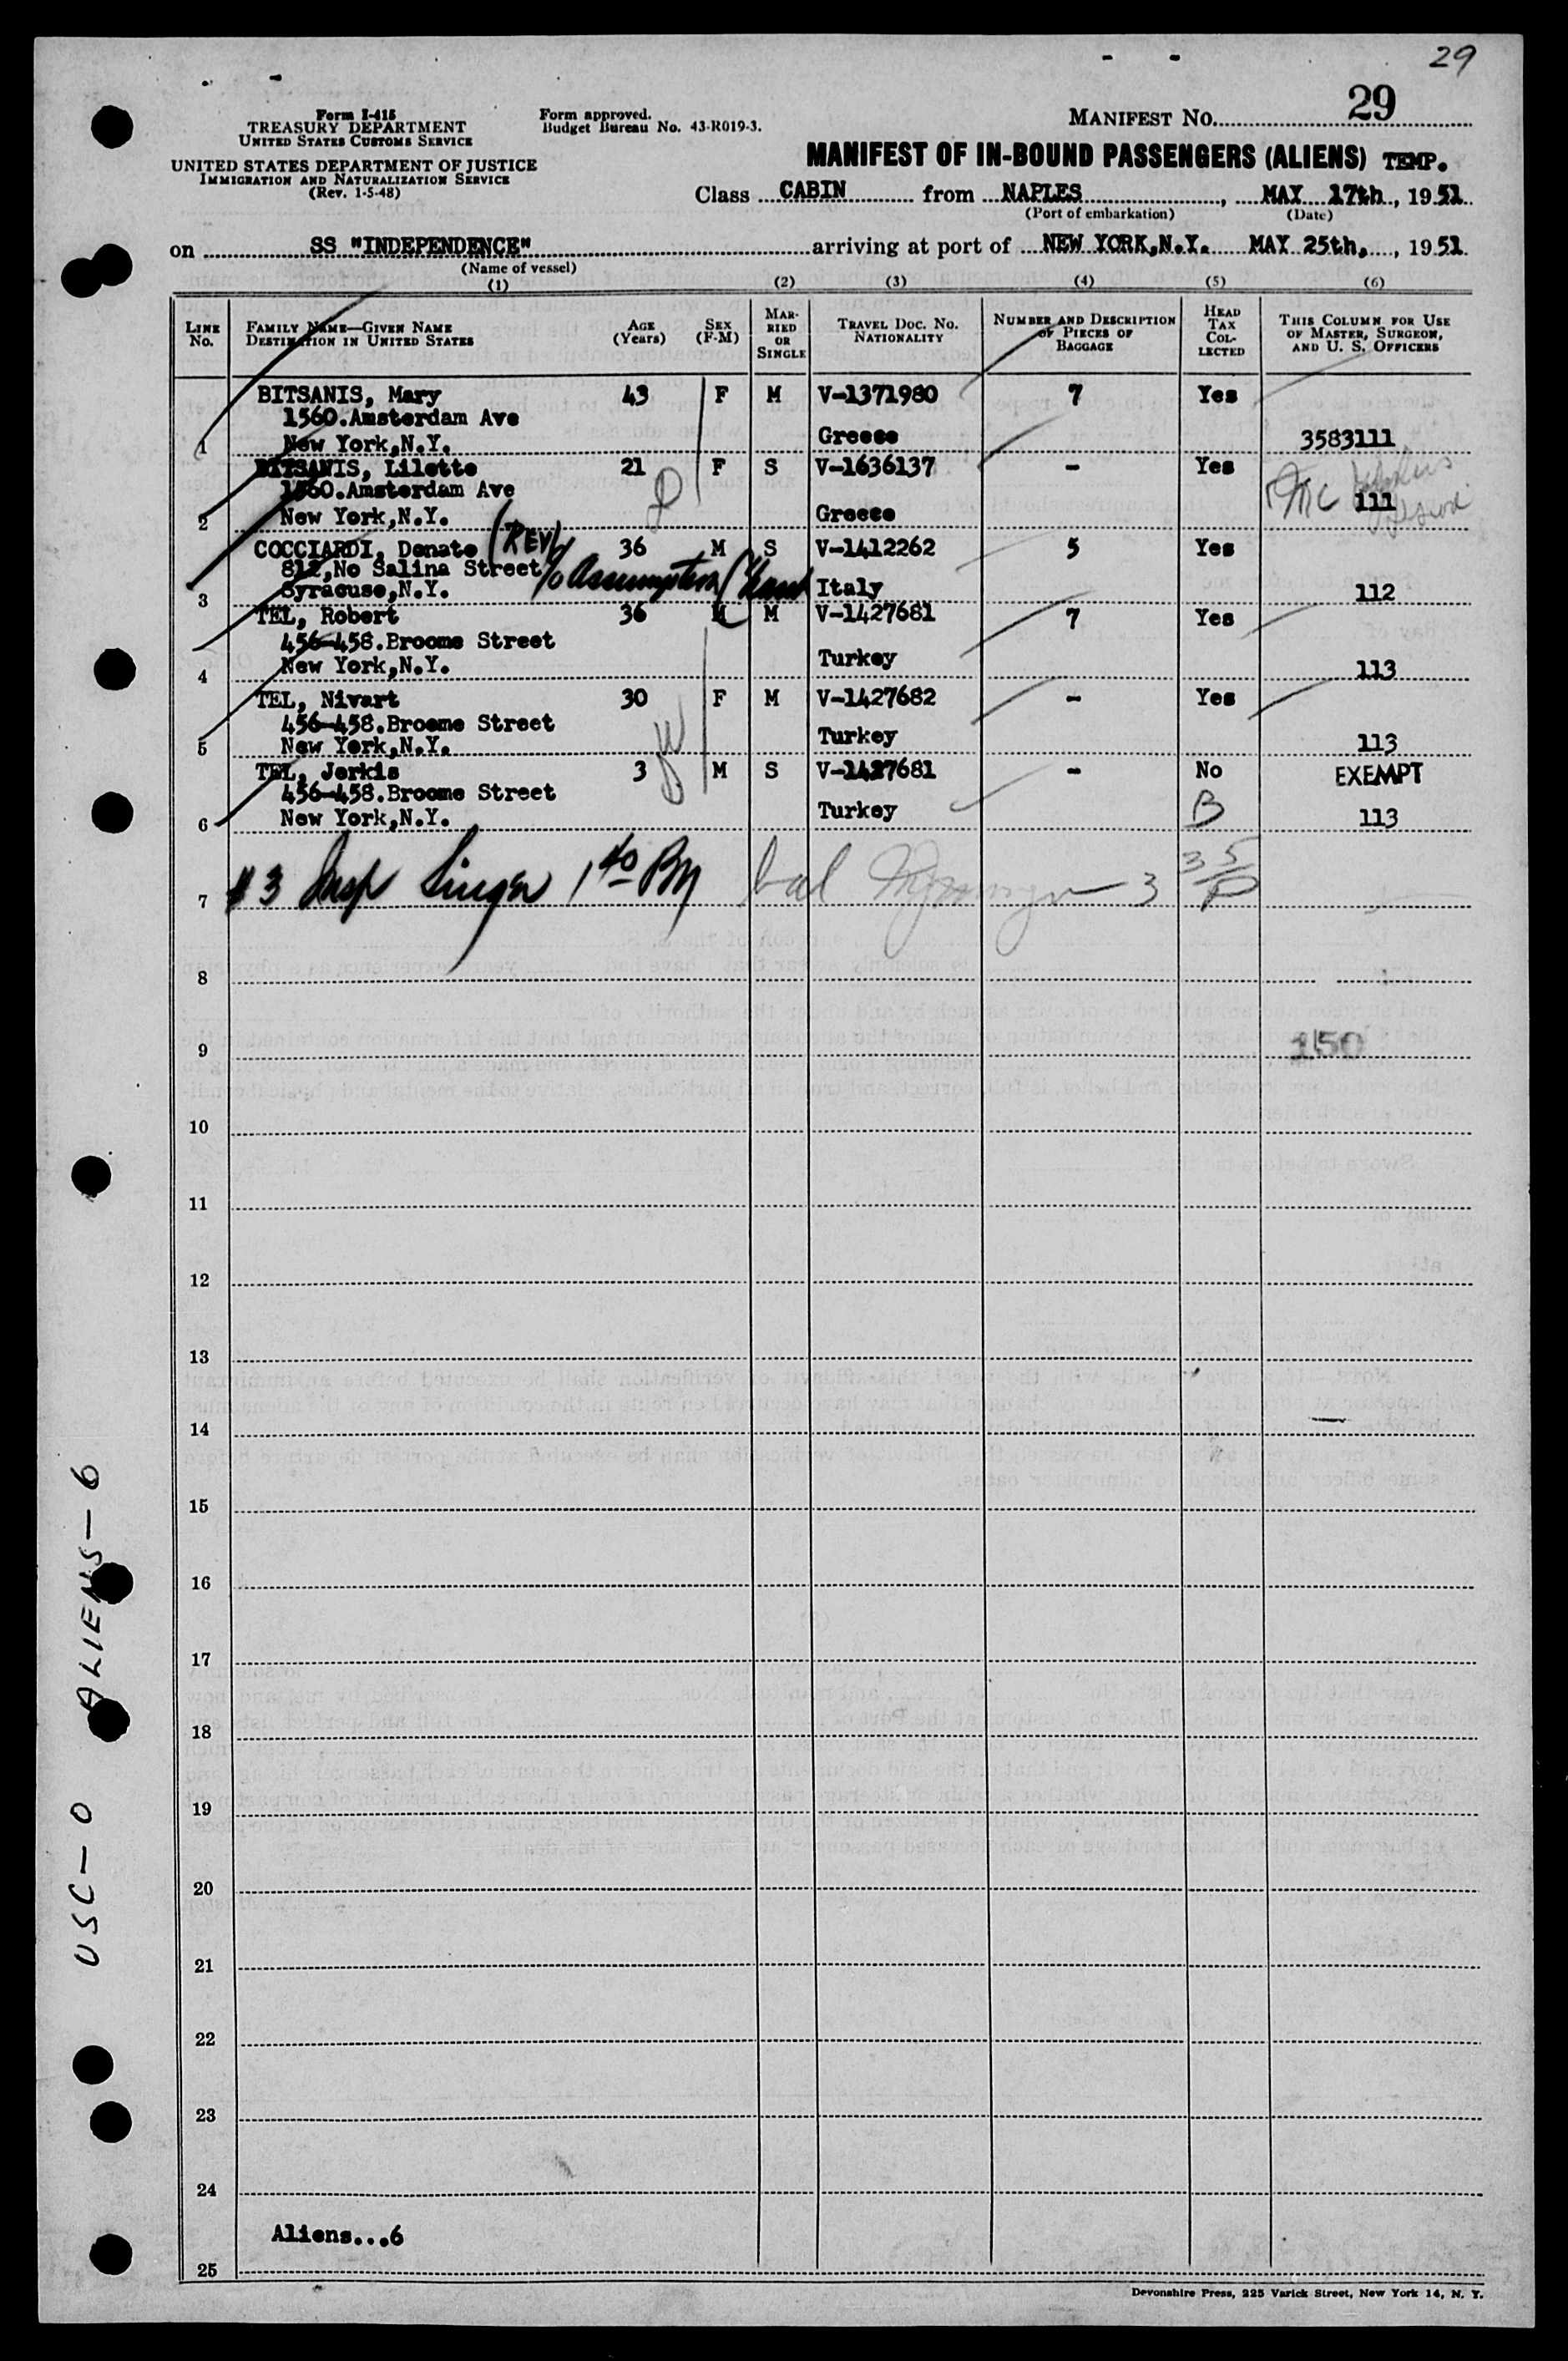 29
Form I-415
TREASURY DEPARTMENT
UNITED STATES CUSTOMS SERVICE
UNITED STATES DEPARTMENT OF JUSTICE
IMMIGRATION AND NATURALIZATION SERVICE
(Rev. 1-5-48)
Form approved.
Budget Bureau No. 43-R019-3.
MANIFEST NO. 29
MANIFEST OF IN-BOUND PASSENGERS (ALIENS) TEMP.
Class CABIN from NAPLES, MAY 17th, 1951
(Port of embarkation) (Date)
on SS "INDEPENDENCE" arriving at port of NEW YORK,N.Y. MAY 25th, 1951
(Name of vessel)
(1) (2) (3) (4) (5) (6)
LINE NO. FAMILY NAME—GIVEN NAME DESTINATION IN UNITED STATES AGE (Years) SEX (F-M) MARRIED OR SINGLE TRAVEL DOC. NO. NATIONALITY NUMBER AND DESCRIPTION OF PIECES OF BAGGAGE HEAD TAX COLLECTED THIS COLUMN FOR USE OF MASTER, SURGEON, AND U. S. OFFICERS
BITSANIS, Mary 43 F M V-1371980 7 Yes
1560.Amsterdam Ave
1 New York,N.Y. Greece 3583111
BITSANIS, Lilette 21 F S V-1636137 - Yes
1560.Amsterdam Ave
2 New York,N.Y. Greece 111
COCCIARDI, Donato (REV) 36 M S V-1412262 5 Yes
812,No Salina Street c/o Assumption Church
3 Syracuse,N.Y. Italy 112
TEL, Robert 36 M M V-1427681 7 Yes
456-458.Broome Street
4 New York,N.Y. Turkey 113
TEL, Nivart 30 F M V-1427682 - Yes
456-458.Broome Street
5 New York,N.Y. Turkey 113
TEL, Jerkis 3 M S V-1427681 - No EXEMPT
456-458.Broome Street
6 New York,N.Y. Turkey B 113
7 #3 Insp Singer
8
9 150
10
11
12
13
14
15
16
17
18
19
20
21
22
23
24
Aliens...6
25
Devonshire Press, 225 Varick Street, New York 14, N. Y.
USC-0 ALIENS-6